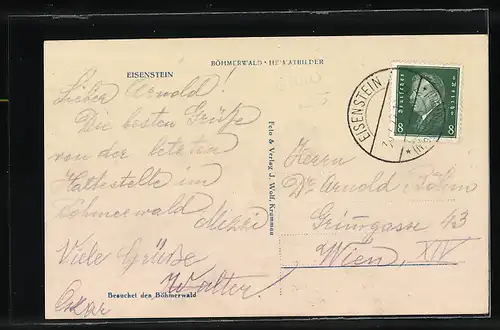 BÖHMERWALD-HEIMATBILDER
EISENSTEIN
Lieber Arnold!
Die besten Grüße
von der letzten
Haltestelle im
Böhmerwald
Mizzi
Viele Grüße
Walter.
Oskar
Besuchet den Böhmerwald
Foto & Verlag J. Wolf, Krummau
EISENSTEIN
Deutsches Reich
8 8
Herrn
Dr. Arnold Böhm
Grimmgasse 43
Wien, XIV